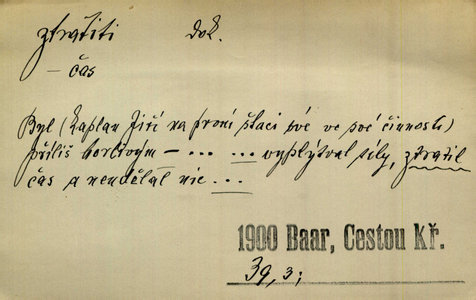 ztratiti dok.
– čas
Byl (kaplan Jiří na první štaci své ve své činnosti)
příliš horlivým – ... ... vyplýtval síly, ztratil
čas a neudělal nic ...
1900 Baar, Cestou Kř.
39, 3;